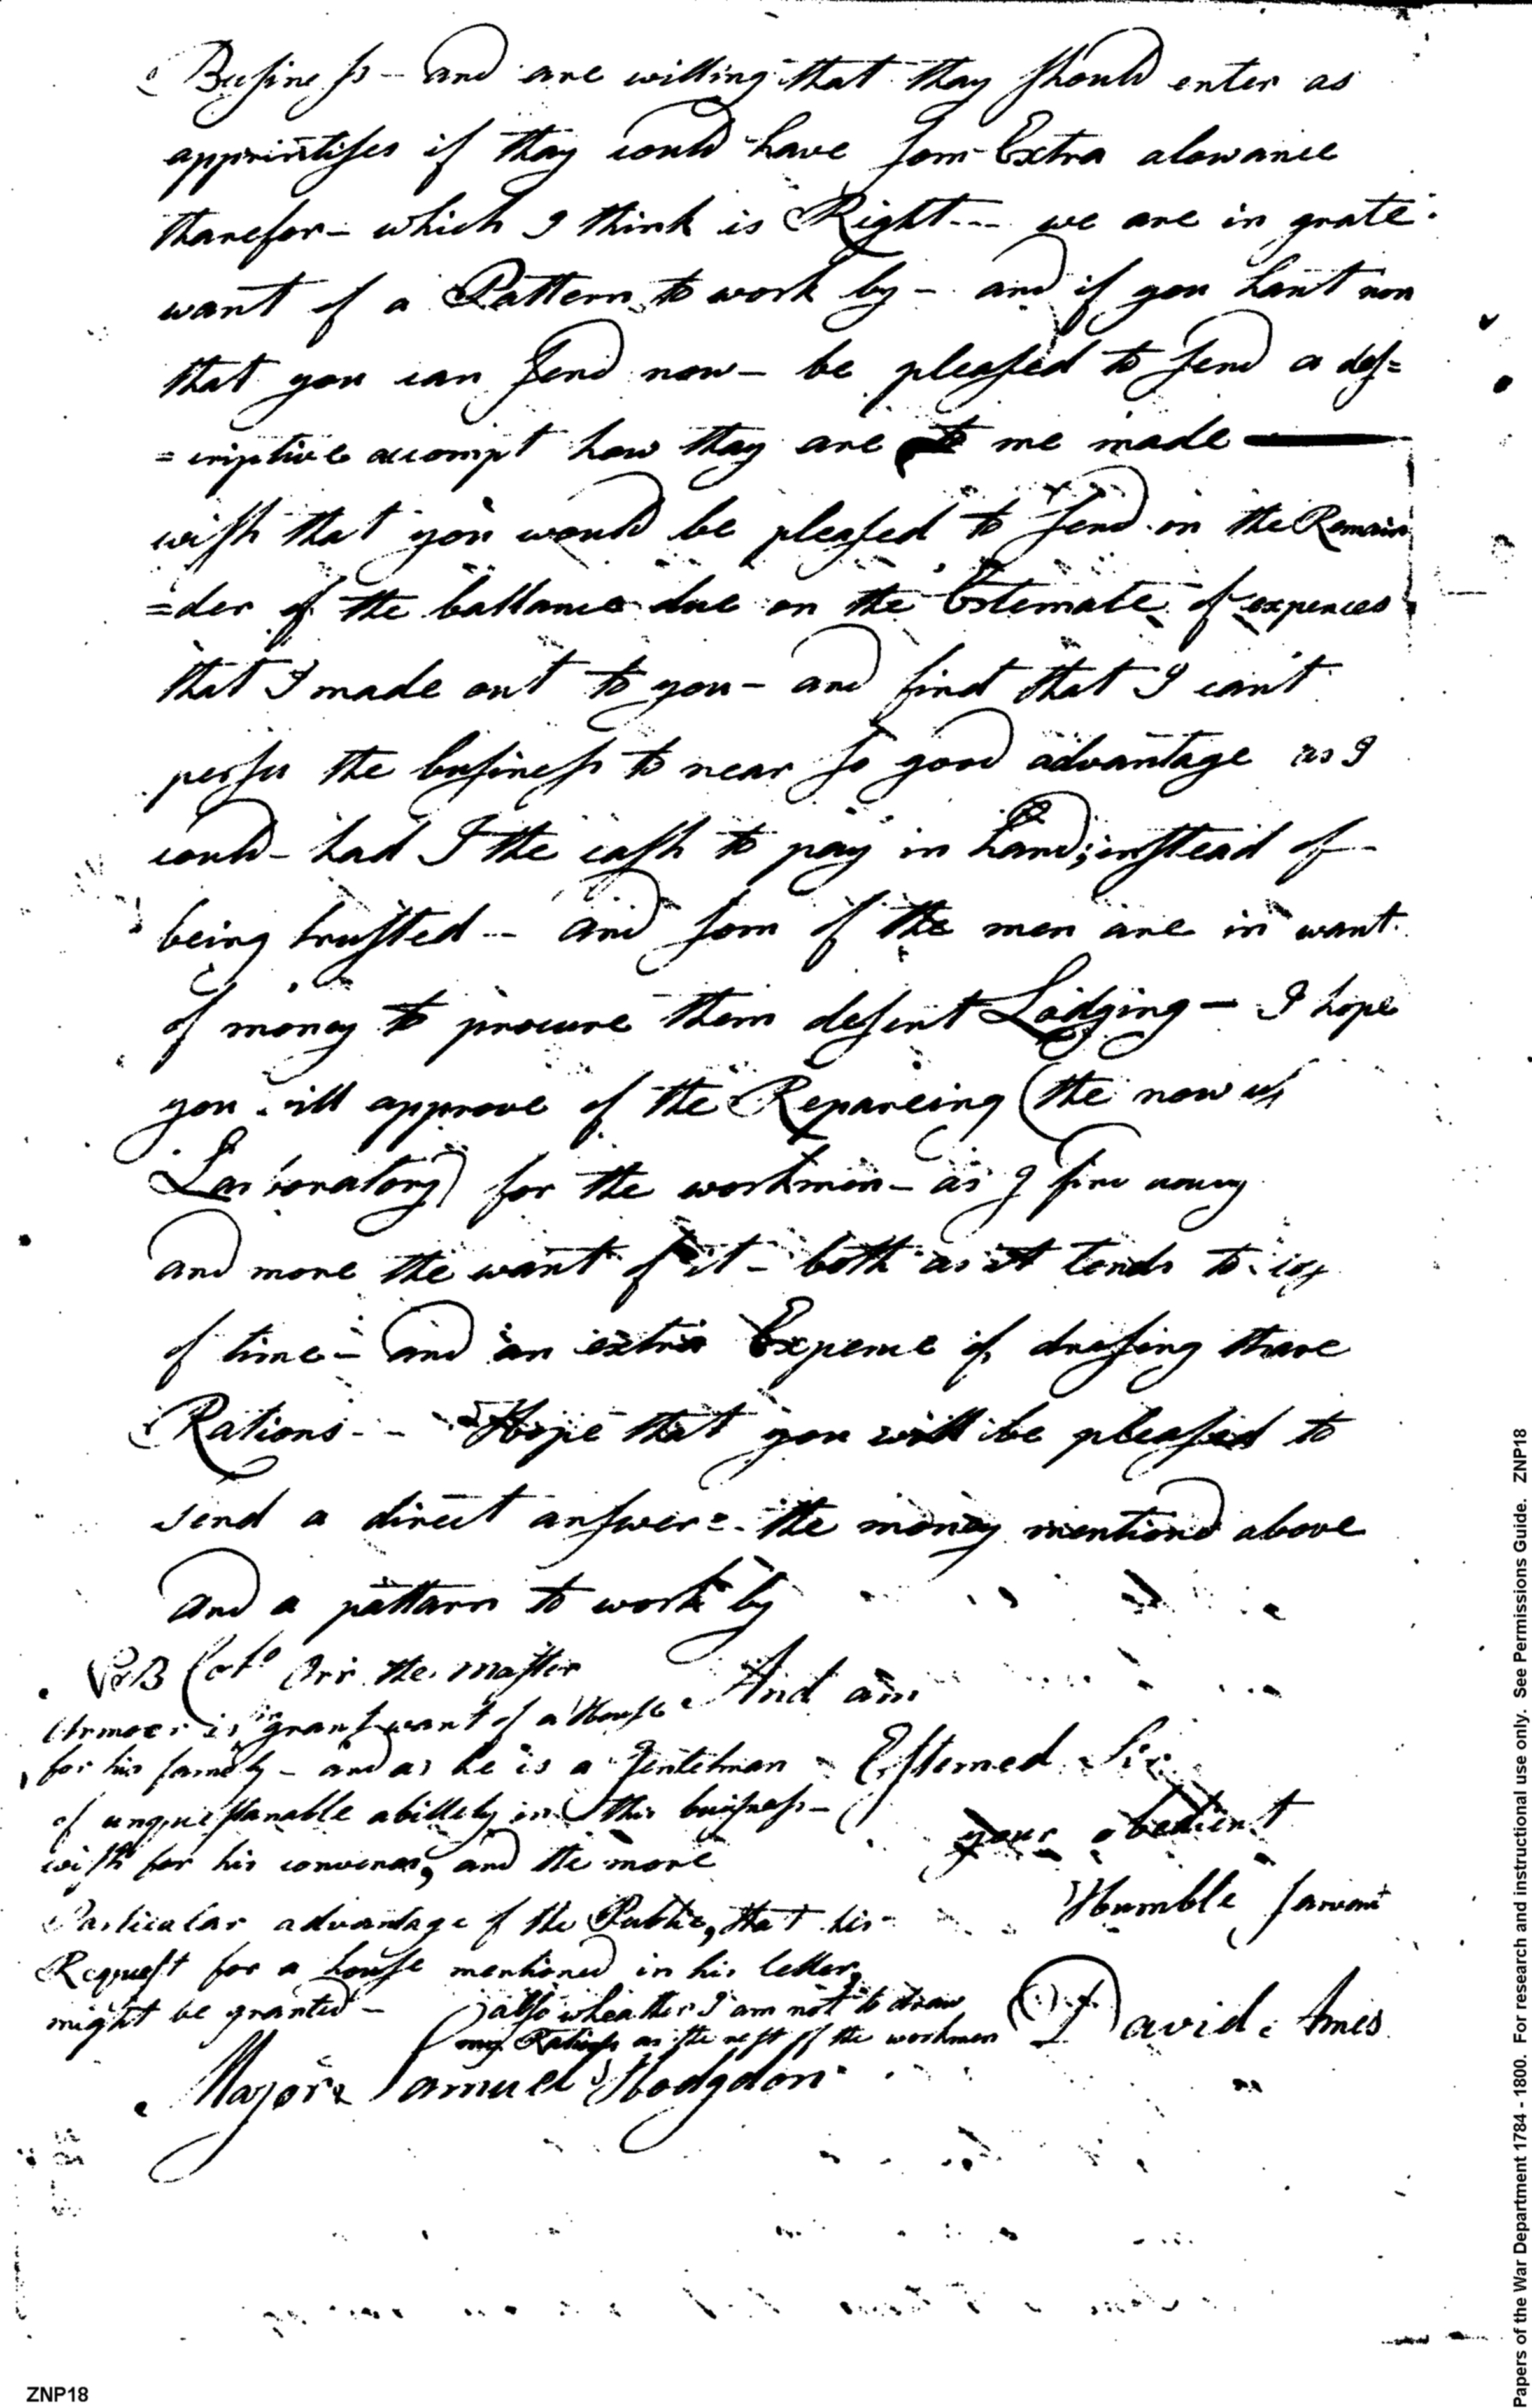 Business - and are willing that thay should enter as
apprintises if thay could have som Extra alowance
tharefor - which I think is Right --- we are in grate
want of a Pattern to work by - and if you hant non
that you can send now - be pleased to send a des=
=criptive accompt how thay are to me made
wish that you would be pleased to send on the Remain
=der of the ballance due on the Estemate of expences
that I made out to you - and find that I can't
persu the business to near so good advantage as I
could - had I the cash to pay in hand; instead of -
being trusted -- and som of the men are in want
of money to procure them desent Lodging - I hope
you will approve of the Repareing (the now
Laboratory) for the workmen - as I find
and more the want of it - both as it tends to
of time - and an extra Expence of dresing thare
Rations -- Hope that you will be pleased to
send a direct answer = the money mentiond above
and a pattarn to work by
NB Orr the Master
Armorer is in want of a House
for his famely - and as he is a Gentelman
of unquestianable abillety in this buisness -
wish for his and the more
Particular advantage of the Public, that his
Request for a house mentioned in his letter,
might be granted -
also wheather I am not to draw
my Rations as the rest of the workmen
And am
Estemed Sir
your obedient
Humble sarvant
David Ames
Major Samuel Hodgdon
Papers of the War Department 1784 - 1800. For research and instructional use only. See Permissions Guide. ZNP18
ZNP18